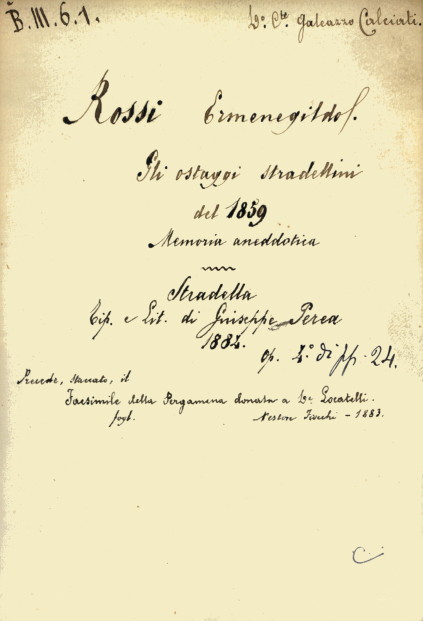 B. III. 6. 1.
Dº. Cte. Galeazzo Calciati.
Rossi Ermenegildo.
Gli ostaggi stradellini
del 1859
Memoria aneddotica
Stradella
Tip. e Lit. di Giuseppe Perea
1884.
op. 4º di pp. 24.
Precede, staccato, il
Facsimile della Pergamena donata a Locatelli.
fogl. Nestore - 1883.
C